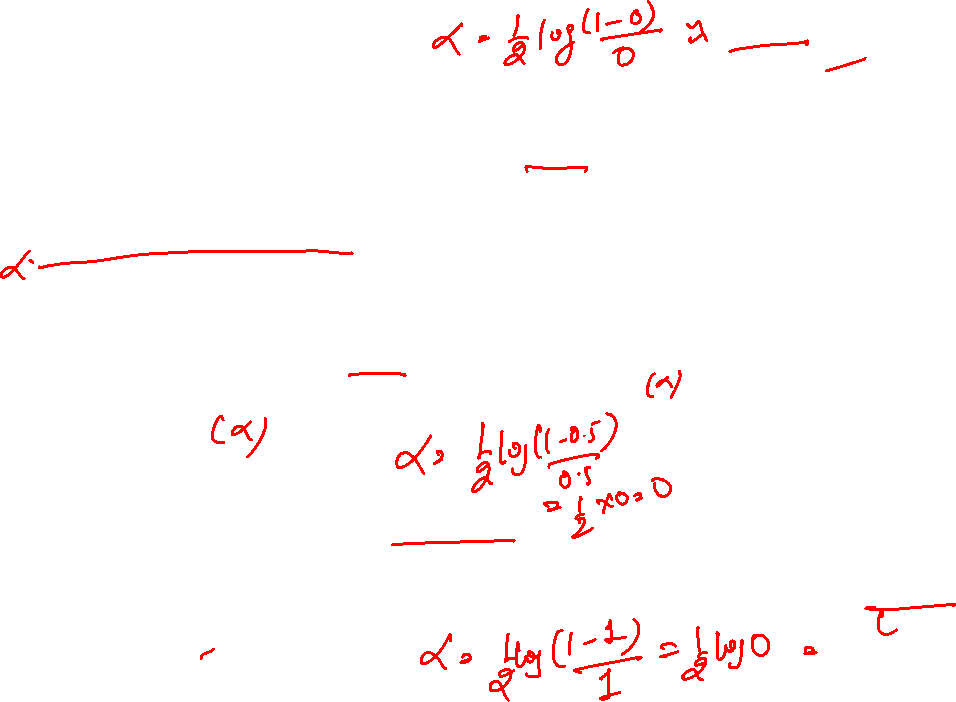 α = 1/2 log (1-0)/0
α
(α)
(α) α = 1/2 log((1-0.5)/0.5)
= 1/2 × 0 = 0
α = 1/2 log (1-1)/1 = 1/2 log 0 =